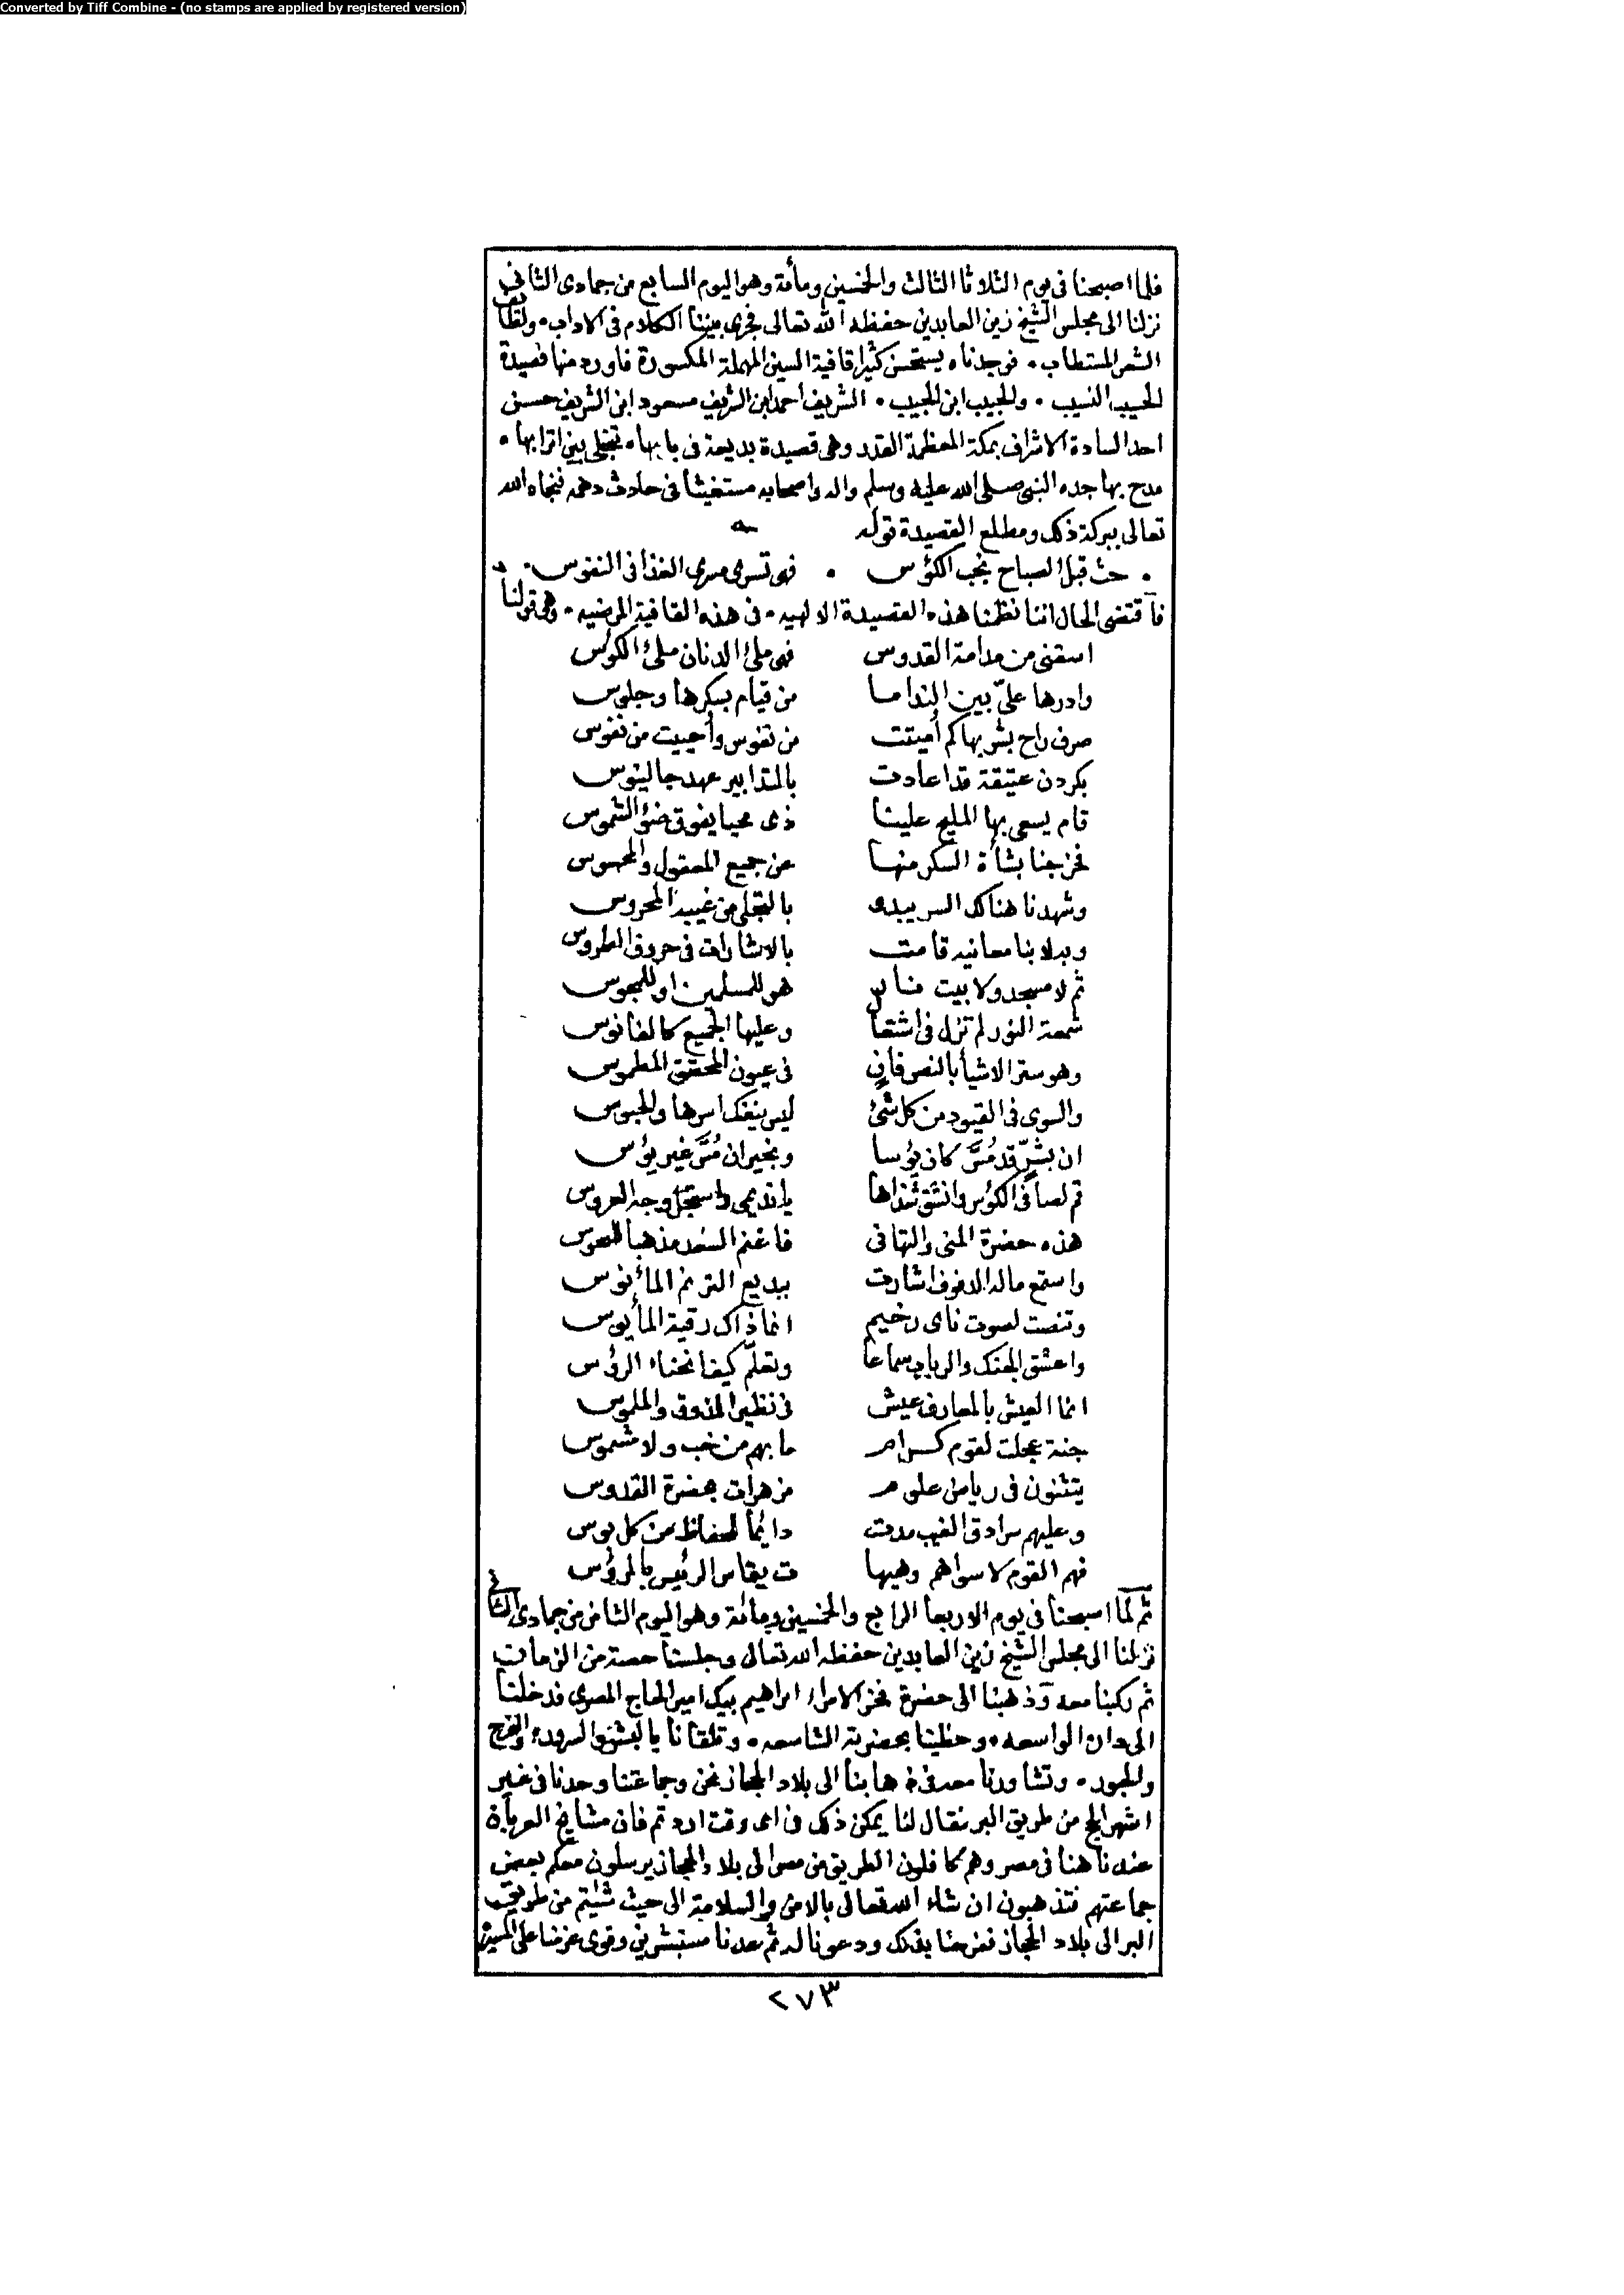 Converted by Tiff Combine - (no stamps are applied by registered version)
فلما اصبحنا فى يوم الثلاثا الثالث والخمسين ومأة وهو اليوم السابع من جمادى الثانى
نزلنا الى مجلس الشيخ زين العابدين حفظه الله تعالى فجرى بيننا الكلام فى الاداب ٠ ولطائف
الشعر المستطاب ٠ فوجدناه يستحسن كثيرا قافية السين المهملة المكسورة فاورد منها قصيدة
الحسيب النسيب ٠ والجيب ابن الجيب ٠ الشريف احمد ابن الشريف مسعود ابن الشريف حسن
احد السادة الاشراف بمكة المعظمة القدر وهى قصيدة بديعة فى بابها ٠ تتجلى بين اترابها ٠
مدح بها جده النبى صلى الله عليه وسلم واله واصحابه مستغيثا فى حادث دهمه فنجاه الله
تعالى ببركة ذلك ومطلع القصيدة قوله
٠ حث قبل الصباح نجب الكؤس ٠ فهى تسرى مسرى الغذا فى النفوس ٠
فاقتضى الحال اننا نظمنا هذه القصيدة الالهيه ٠ فى هذه القافية المرضيه ٠ وهى قولنا
اسقنى من مدامة القدوس فهى ملئ الدنان ملئ الكؤس
وادرها علىّ بين النداما من قيام بسكرها وجلوس
صرف راح بشربها كم أميتت من نفوس وأحييت من نفوس
بكر دن عتيقة قد اعادت بالتدابير عهد جالينوس
قام يسعى بها المليح علينا ذى محيا يفوق ضؤ الشموس
فخرجنا بشأة السكر منها عن جميع المعقول والمحسوس
وشهدنا هنالك السر يبدو بالتجلى من غيبه المحروس
وبدلا بنا معانيه قامت بالاشارات فى حروف الطروس
ثم لا مسجد ولا بيت ناس هو للمسلمين او للمجوس
شمعة النور لم تزل فى اشتعال وعليها الجميع كالفانوس
وهو ستر الاشيا بالنص فانٍ فى عيون المحقق المطموس
والسوى فى القيود من كل شئ ليس ينفك اسرها والحبوس
ان بشرّ قد مُسَّ كان يؤسا وبخير ان مُسَّ غير يؤس
قم لصافى الكؤس وانشق شذاها يا نديمى واستجل وجه العروس
هذه حضرة المنى والتهانى فاغنم السعد مذهبا للعبوس
واستمع ماله الدفوف اشارت ببديع الترنم المأنوس
وتنصت لصوت ناى رخيم انما ذاك رقية المأيوس
واعشق الجنك والرباب سماعا وتعلّم كيف انحناء الرؤس
انما العيش بالمعارف عيش فى نظير المذوق والملموس
جنة عجلت لقوم كرام ما بهم من خب ولا شموس
يتثنون فى رياض علوم مزهرات بحضرة القدوس
وعليهم سرادق الغيب مدت دائما للحفاظ من كل بوس
فهم القوم لا سواهم وهيها ت يقاس الرئيس بالمرؤس
ثم لما اصبحنا فى يوم الاربعا الرابع والخمسين ومائة وهو اليوم الثامن من جمادى الثانى
نزلنا الى مجلس الشيخ زين العابدين حفظه الله تعالى وجلسنا حصة من الزمان
ثم ركبنا معه وذهبنا الى حضرة فخر الامراء ابراهيم بيك امير الحاج المصرى فدخلنا
الى داره الواسعه ٠ وحظينا بحضرته الشاسعه ٠ وتلقانا بالبشر والسرور ٠ والفرح
والحبور ٠ وتشاورنا معه فى ذهابنا الى بلاد الحجاز نحن وجماعتنا وحدنا فى غير
اشهر الحج من طريق البر فقال لنا يمكن ذلك فى اى وقت اردتم فان مشايخ العربان
عندنا هنا فى مصر وهم كافلون الطريق من مصر الى بلاد الحجاز يرسلون معكم بعض
جماعتهم فتذهبون ان شاء الله تعالى بالامن والسلامة الى حيث شئتم من طريق
البر الى بلاد الحجاز ففرحنا بذلك ودعونا له ثم عدنا مستبشرين وقوى عزمنا على المسير
٢٧٣